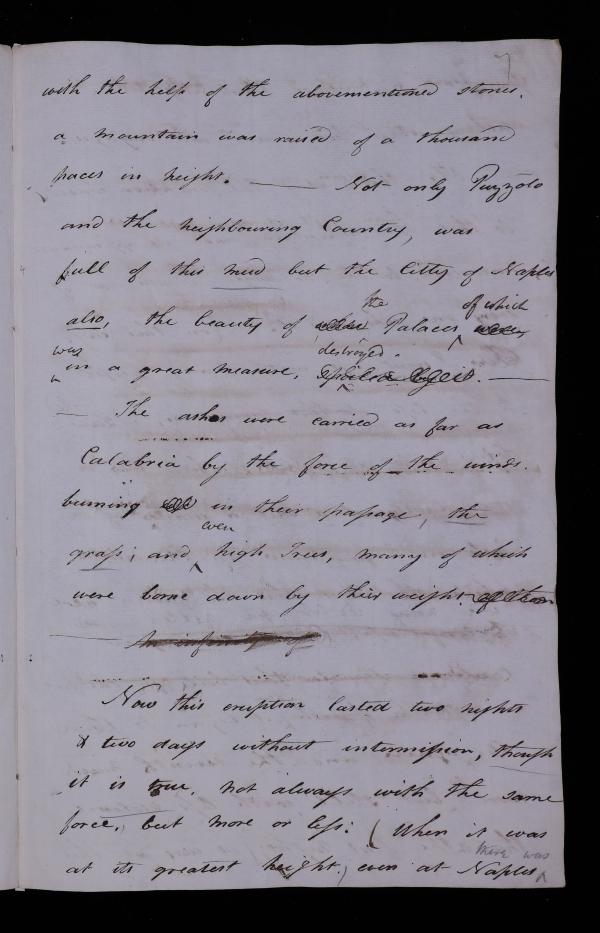 7
with the help of the abovementioned stones.
a mountain was raised of a thousand
paces in height. — Not only Puzzolo
and the neighbouring Country, was
full of this mud but the Citty of Naples
the of which
also, the beauty of Palaces
was destroyed.
in a great measure, spoiled by it. —
— The ashes were carried as far as
Calabria by the force of the winds.
burning all in their passage, the
even
grass; and high Trees, many of which
were borne down by their weight. of them
An infinity of
Now this eruption lasted two nights
& two days without intermission, though
it is true, not always with the same
force, but more or less: (When it was
there was
at its greatest height,) even at Naples